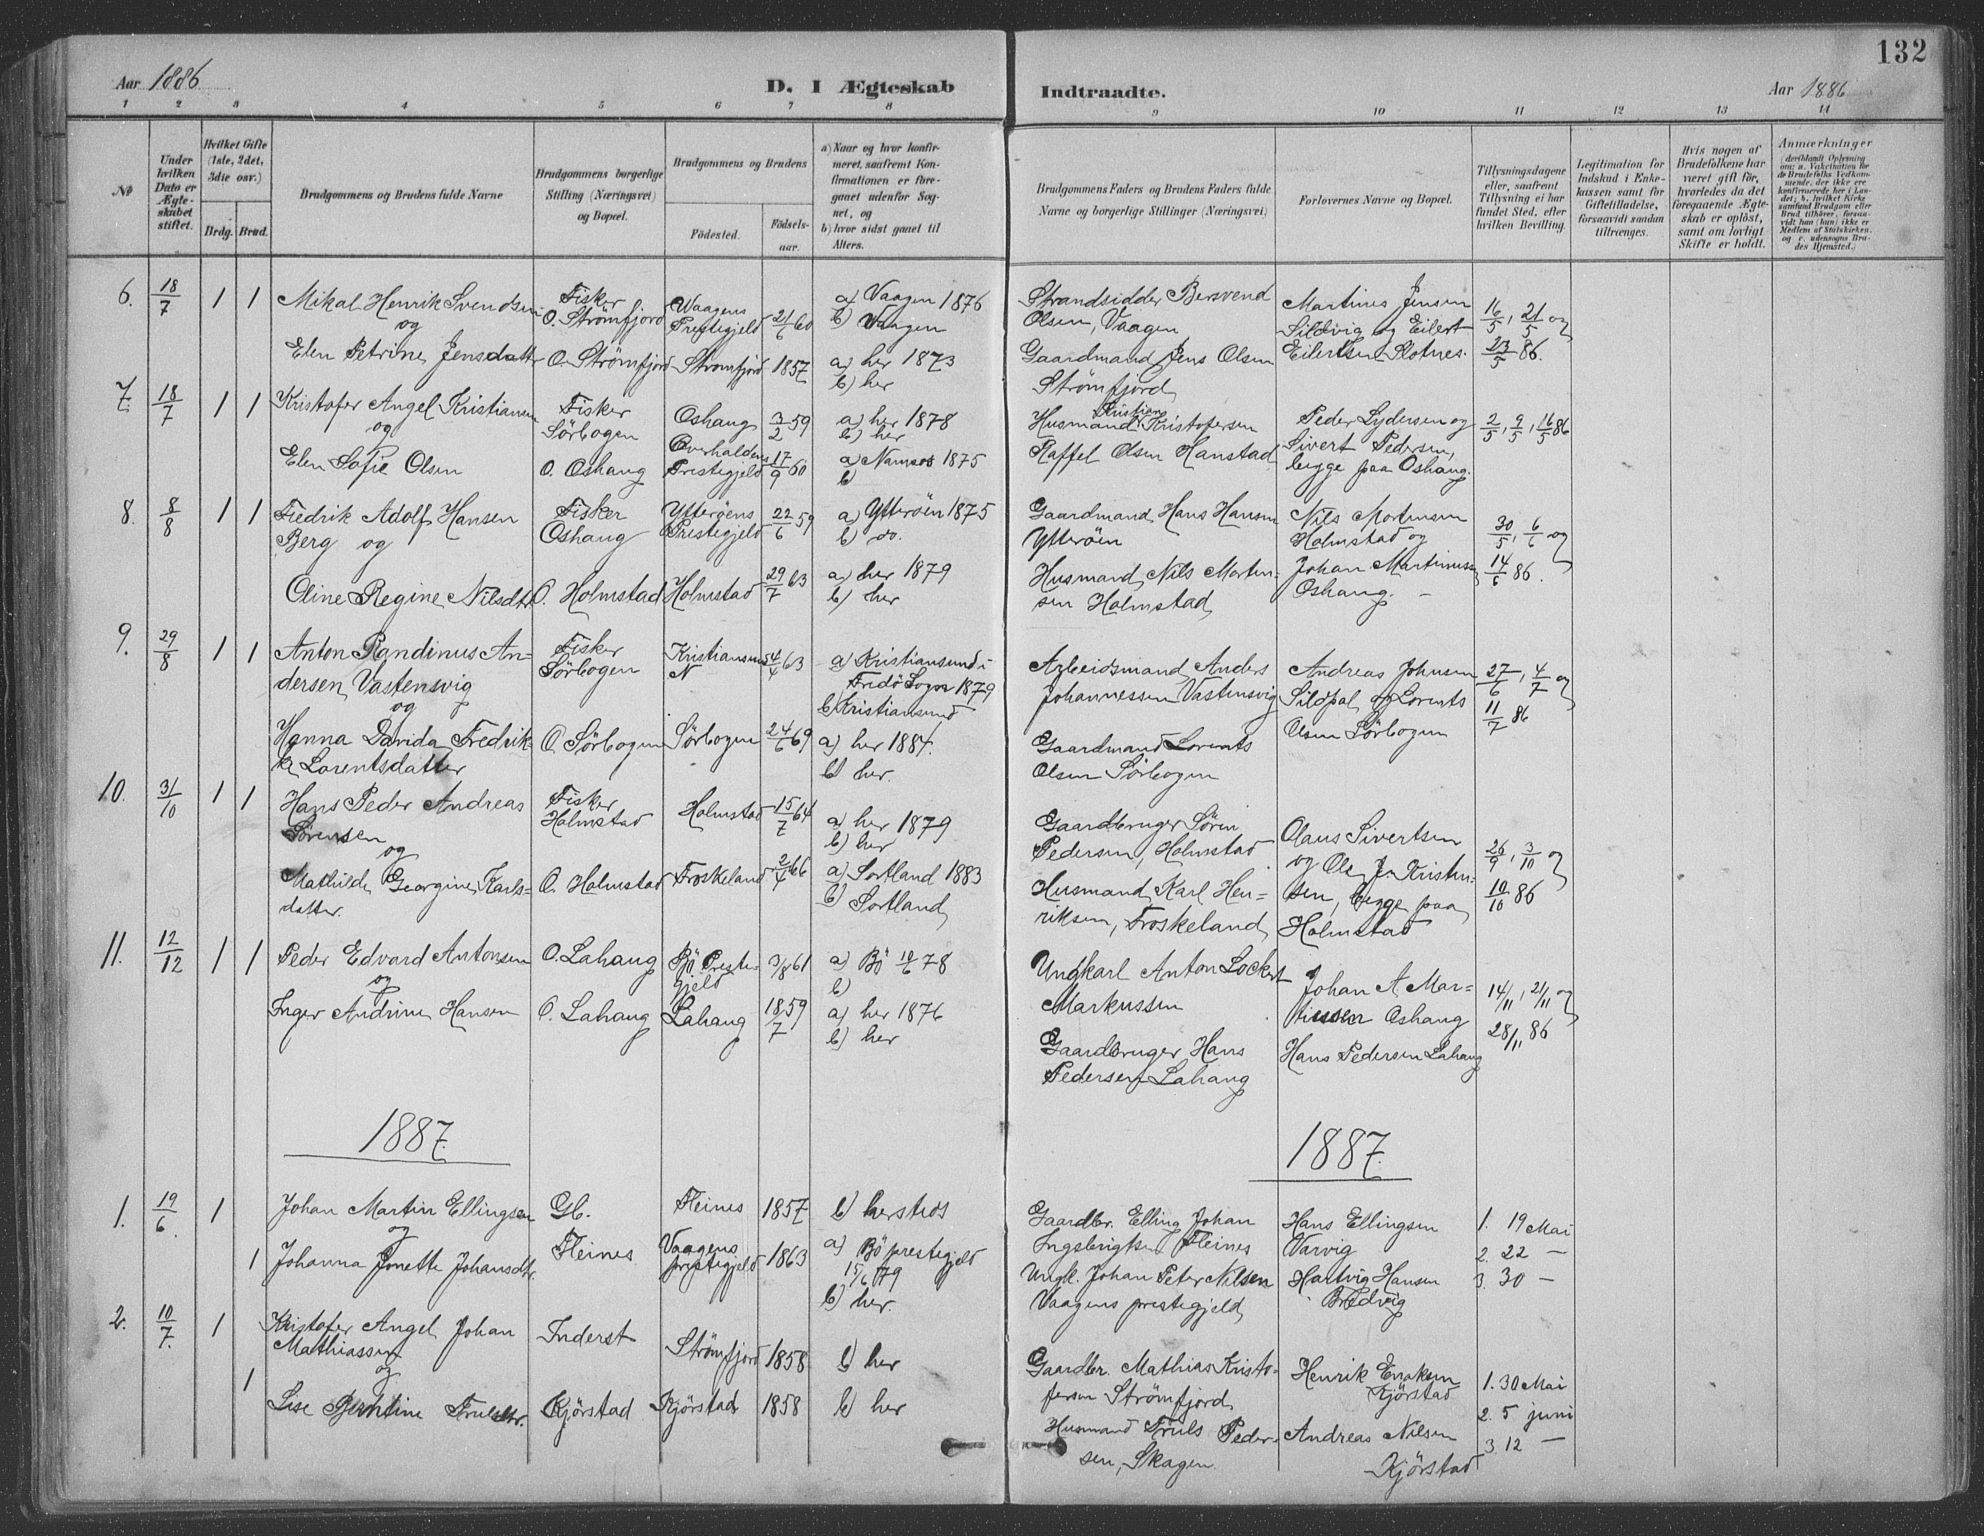 132
Aar 1886
D. I Ægteskab
Indtraadte.
Aar 1886
1 2 3 4 5 6 7 8 9 10 11 12 13 14
No
Under hvilken Dato er Ægteskabet stiftet.
Hvilket Gifte (1ste, 2det, 3die osv.)
Brdg. Brud.
Brudgommens og Brudens fulde Navne
Brudgommens borgerlige Stilling (Næringsvei) og Bopæl.
Brudgommens og Brudens
Födested.
Födselsaar.
a) Naar og hvor konfirmeret, saafremt Konfirmationen er foregaaet udenfor Sognet, og
b) hvor sidst gaaet til Alters.
Brudgommens Faders og Brudens Faders fulde Navne og borgerlige Stillinger (Næringsvei)
Forlovernes Navne og Bopæl.
Tillysningsdagene eller, saafremt Tillysning ei har fundet Sted, efter hvilken Bevilling.
Legitimation for Indskud i Enkekassen samt for Giftetilladelse, forsaavidt saadan tiltrænges.
Hvis nogen af Brudefolkene har været gift för, hvorledes da det foregaaende Ægteskab er oplöst, samt om lovligt Skifte er holdt.
Anmærkninger
(deriblandt Oplysning om: a. Vakcination for de Brudefolks Vedkommende, der ikke ere konfirmerede her i Landet; b. hvilket Kirkesamfund Brudgom eller Brud tilhörer, forsaavidt han (hun) ikke er Medlem af Statskirken, og c. udensogns Brudes Hjemsted.)
6. 18/7 1 1 Mikal Henrik Svendsen Fisker Waagens a) Vaagen 1876 Strandsidder Bersvend Martines Jensen 16/5, 21/5 og
og O. Strømfjord Prestegjeld 21/6 60 b) Vaagen Olsen, Vaagen Sildvig og Eilert
Elen Petrine Jensdatter O. Strömfjord Strømfjord 1857 a) her 1873 Gaardmand Jens Olsen Eilertsen 23/5 86.
b) her Strømfjord
7. 18/7 1 1 Kristofer Angel Kristiansen Fisker Oshaug 3/2 59 a) her 1878 Husmand Kristian Kristofersen Peder Lydersen og 2/5, 9/5, 16/5 86
og Sörbogen b) her Sivert Pedersen,
Elen Sofie Olsen O. Oshaug Overhaldens Prestegjeld 17/9 60 a) Namsos 1875 Raffel Olsen Hanstad begge paa Oshaug.
b)
8. 8/8 1 1 Fredrik Adolf Hansen Fisker Ytterøens 22/6 59 a) Ytterøen 1875 Gaardmand Hans Hansen Nils Mortensen 30/5, 6/6 og
Berg og Oshaug Prestegjeld b) do. Ytterøen Holmstad og
Oline Regine Nilsdtr O. Holmstad Holmstad 29/7 63 a) her 1879 Husmand Nils Morten- Johan Martinusen 14/6 86.
b) her sen Holmstad Oshaug. –
9. 29/8 1 1 Anton Randinus An- Fisker Kristiansund 4/4 63 a) Kristiansund i Arbeidsmand Anders Andreas Johnsen 27/6, 4/7 og
dersen Vastensvig Sörbogen N Fredö Sogn 1879 Johannessen Vastensvig Sildpol og Lorents 11/7 86
og b) Kristiansund Olsen Sörbogen
Hanna Davida Fredrik- O. Sörbogen Sörbogen 24/6 69 a) her 1884. Gaardmand Lorents
ke Lorentsdatter b) her. Olsen Sörbogen
10. 31/10 1 1 Hans Peder Andreas Fisker Holmstad 15/7 64 a) her 1879 Gaardbruger Sören Olaus Sivertsen 26/9, 3/10 og
Sörensen Holmstad b) her Pedersen, Holmstad og Ole J. Kristen- 10/10 86
og
Mathilde Georgine Karls- O. Holmstad Froskeland 2/4 66 a) Sortland 1883 Husmand Karl Hen- sen, begge paa
datter. b) Sortland riksen, Froskeland Holmstad
11. 12/12 1 1 Peder Edvard Antonsen O. Lahaug Bö Preste- 3/8 61 a) Bö 10/6 78 Ungkarl Anton Lockert Johan A Mar- 14/11, 21/11 og
og gjeld b) Markussen tinsen Oshaug 28/11 86
Inger Andrine Hansen O. Lahaug Lahaug 18/7 59 a) her 1876 Gaardbruger Hans Hans Pedersen Lahaug
b) her Pedersen Lahaug
1887 1887.
1. 19/6 1 Johan Martin Ellingsen Gb. Fleines 1857 b) hersteds Gaardbr. Elling Johan Hans Ellingsen 1. 19 Mai
og Fleines Ingebrigtsen Fleines Varvig 2. 22 –
1 Johanna Jonette Johansdtr. Vaagens prestegjeld 1863 a) Bö prestegjeld 15/6 79 Ungk. Johan Peter Nilsen Hartvig Hansen 3. 30 –
b) her. Vaagens prestegjeld Bredvig
2. 10/7. 1 Kristofer Angel Johan Inderst Strömfjord 1858 b) her Gaardbr. Mathias Kristo- Henrik 1. 30 Mai
Mathiassen fersen Strömfjord Kjörstad 2. 5 juni
og
1 Lise Berntine Trulsdtr. Kjörstad Kjörstad 1858 b) her Husmand Truls Peder- Andreas Nilsen 3. 12 –
sen, Skagen. Kjörstad